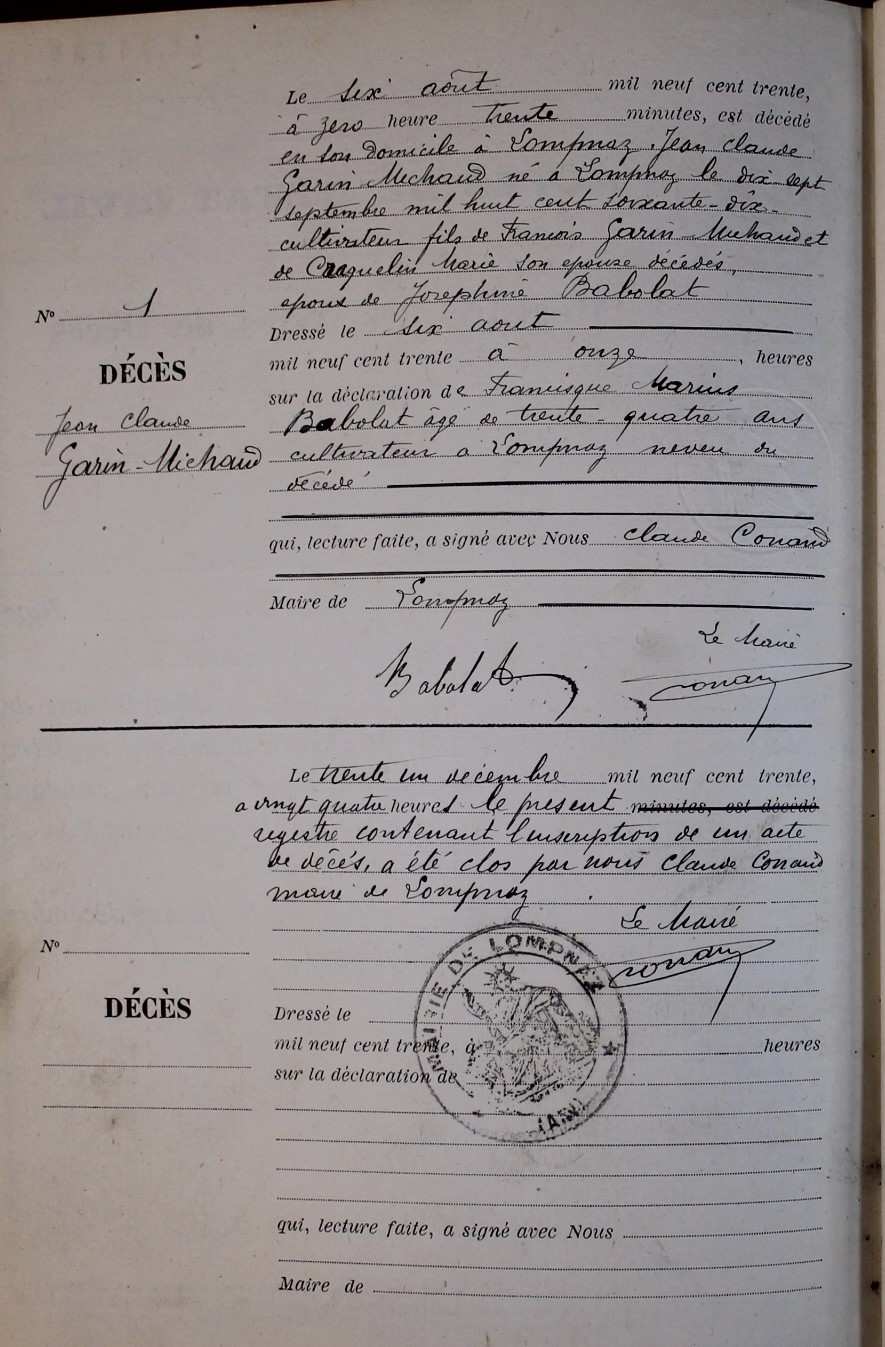 Le six août mil neuf cent trente,
à zero heure trente minutes, est décédé
en son domicile à Lompnaz, Jean Claude
Garin Michaud né à Lompnaz le dix sept
septembre mil huit cent soixante-dix-
cultivateur fils de Francois Garin Michaud et
de Craquelin Marie son epouze décédés,
epoux de Joséphine Babolat
Nº 1
DÉCÈS
Jean Claude
Garin-Michaud
Dressé le six aout
mil neuf cent trente à onze, heures
sur la déclaration de Francisque Marius
Babolat âgé de trente-quatre ans
cultivateur a Lompnaz neveu du
décédé
qui, lecture faite, a signé avec Nous Claude Conand
Maire de Lompnaz
Le Maire
Babolat
Conand
Le trente un décembre mil neuf cent trente,
a vingt quatre heures le présent minutes, est décédé
registre contenant l'inscription de un acte
de décés, a été clos par nous Claude Conand
maire de Lompnaz
Le Maire
Conand
MAIRIE DE LOMPNAZ
(AIN)
Nº
DÉCÈS
Dressé le
mil neuf cent trente, à heures
sur la déclaration de
qui, lecture faite, a signé avec Nous
Maire de